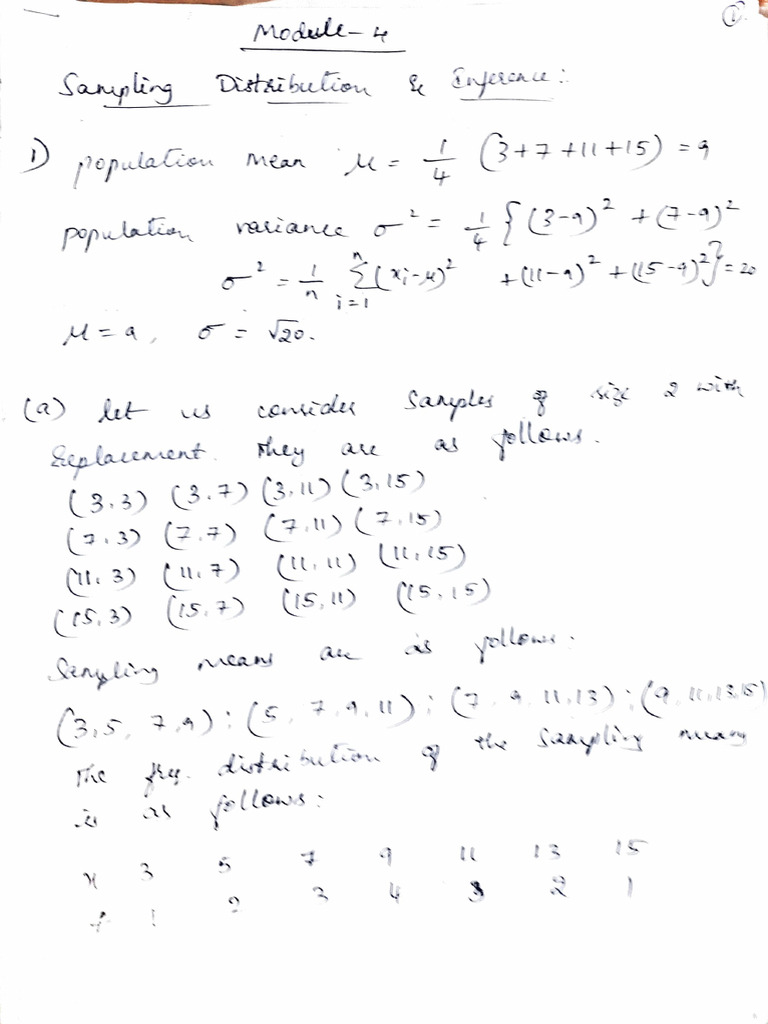 ①
Module-4
Sampling Distribution & Inference:
1) population mean μ = 1/4 (3+7+11+15) = 9
population variance σ² = 1/4 {(3-9)² + (7-9)²
σ² = 1/n Σ_{i=1}^{n} (xi-μ)² + (11-9)² + (15-9)²} = 20
μ = 9, σ = √20.
(a) let us consider samples of size 2 with
Replacement. They are as follows.
(3,3) (3,7) (3,11) (3,15)
(7,3) (7,7) (7,11) (7,15)
(11,3) (11,7) (11,11) (11,15)
(15,3) (15,7) (15,11) (15,15)
Sampling means are as follows:
(3,5, 7,9) ; (5, 7, 9, 11) ; (7, 9, 11, 13) ; (9, 11, 13, 15)
The freq. distribution of the sampling means
is as follows:
x 3 5 7 9 11 13 15
f 1 2 3 4 3 2 1